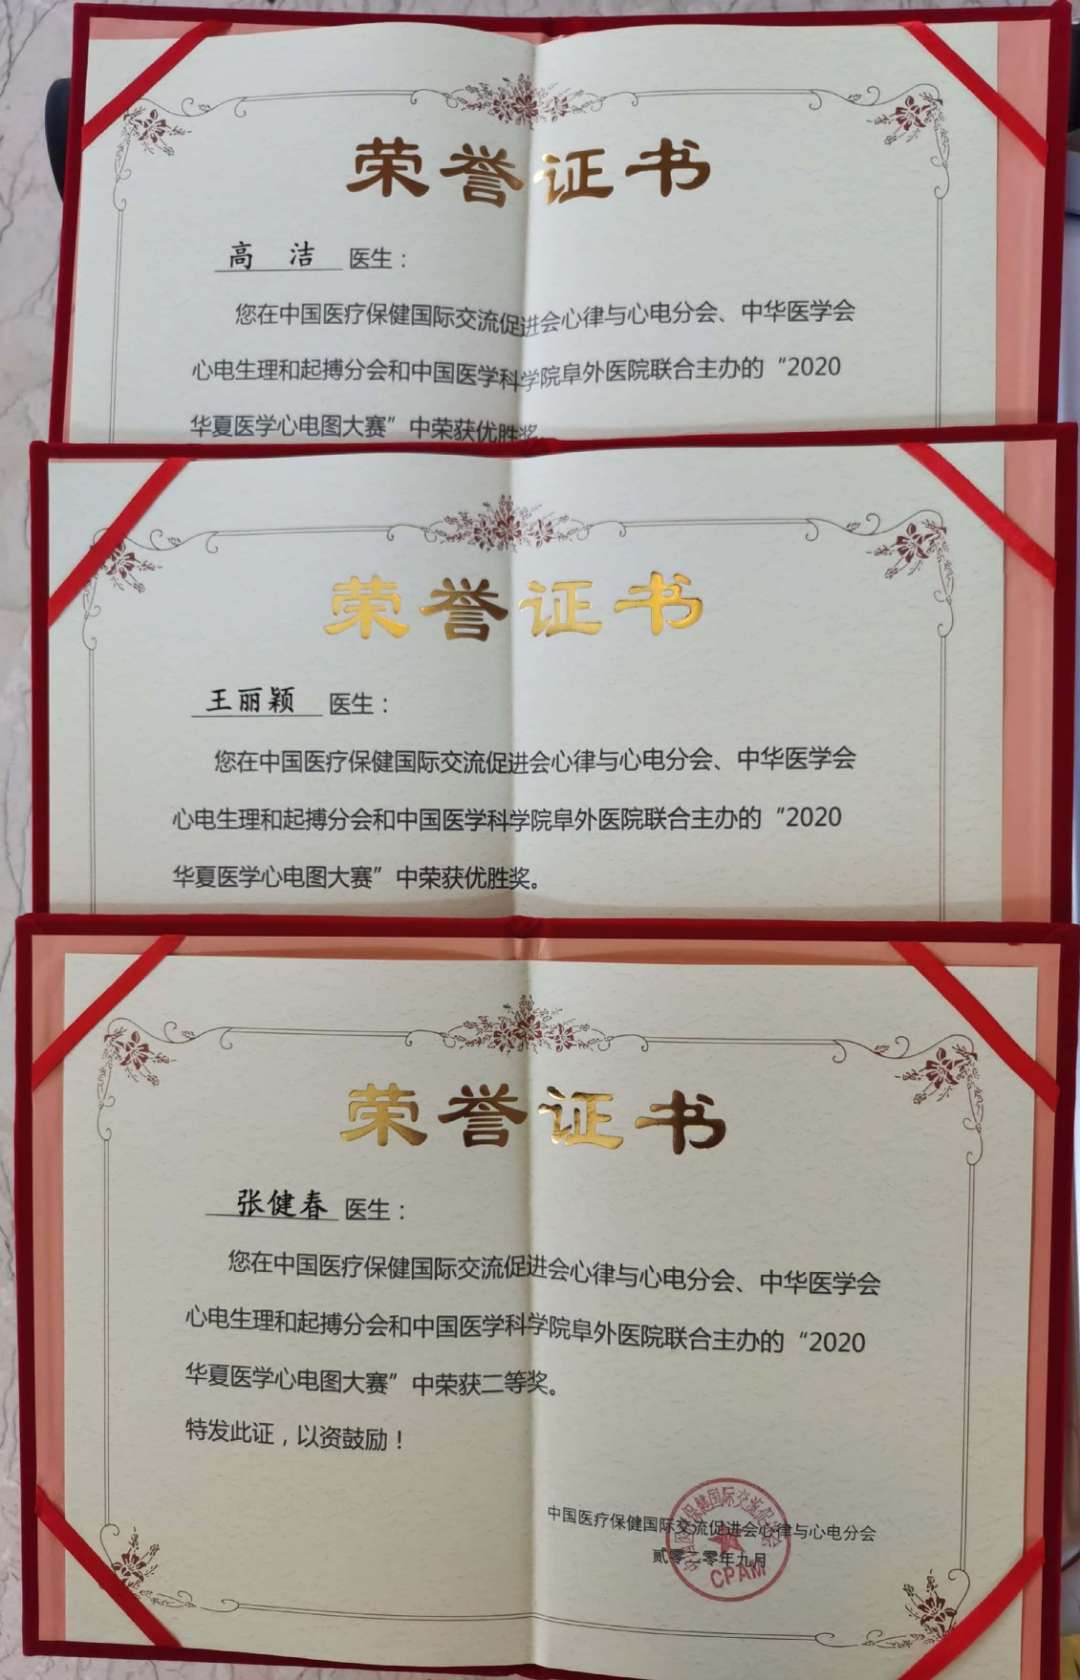 荣誉证书
高 洁 医生：
您在中国医疗保健国际交流促进会心律与心电分会、中华医学会
心电生理和起搏分会和中国医学科学院阜外医院联合主办的“2020
华夏医学心电图大赛”中荣获优胜奖。
荣誉证书
王丽颖 医生：
您在中国医疗保健国际交流促进会心律与心电分会、中华医学会
心电生理和起搏分会和中国医学科学院阜外医院联合主办的“2020
华夏医学心电图大赛”中荣获优胜奖。
荣誉证书
张健春 医生：
您在中国医疗保健国际交流促进会心律与心电分会、中华医学会
心电生理和起搏分会和中国医学科学院阜外医院联合主办的“2020
华夏医学心电图大赛”中荣获二等奖。
特发此证，以资鼓励！
中国医疗保健国际交流促进会心律与心电分会
贰零二零年九月
中国医疗保健国际交流促进会
CPAM